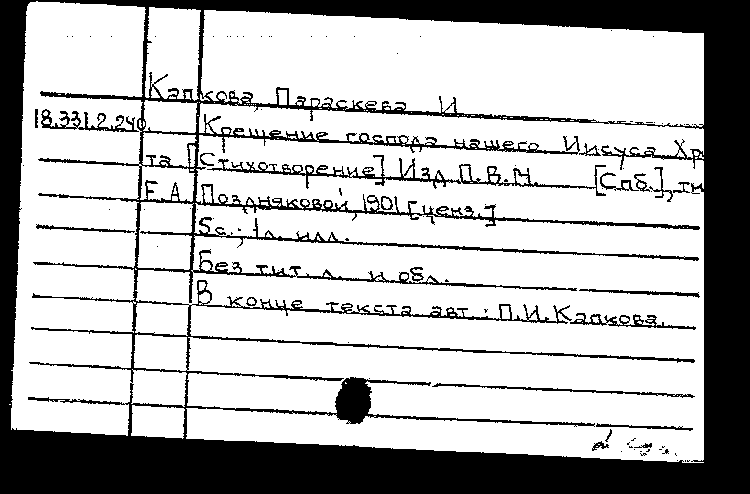 Капкова, Параскева И
18.331.2.240. Крещение господа нашего Иисуса Хр
та [Стихотворение] Изд. П.В.М. [Спб.], ти
Е.А. Поздняковой, 1901 [ценз.]
5с.; 1л. илл.
Без тит. л. и обл.
В конце текста авт.: П.И.Капкова.